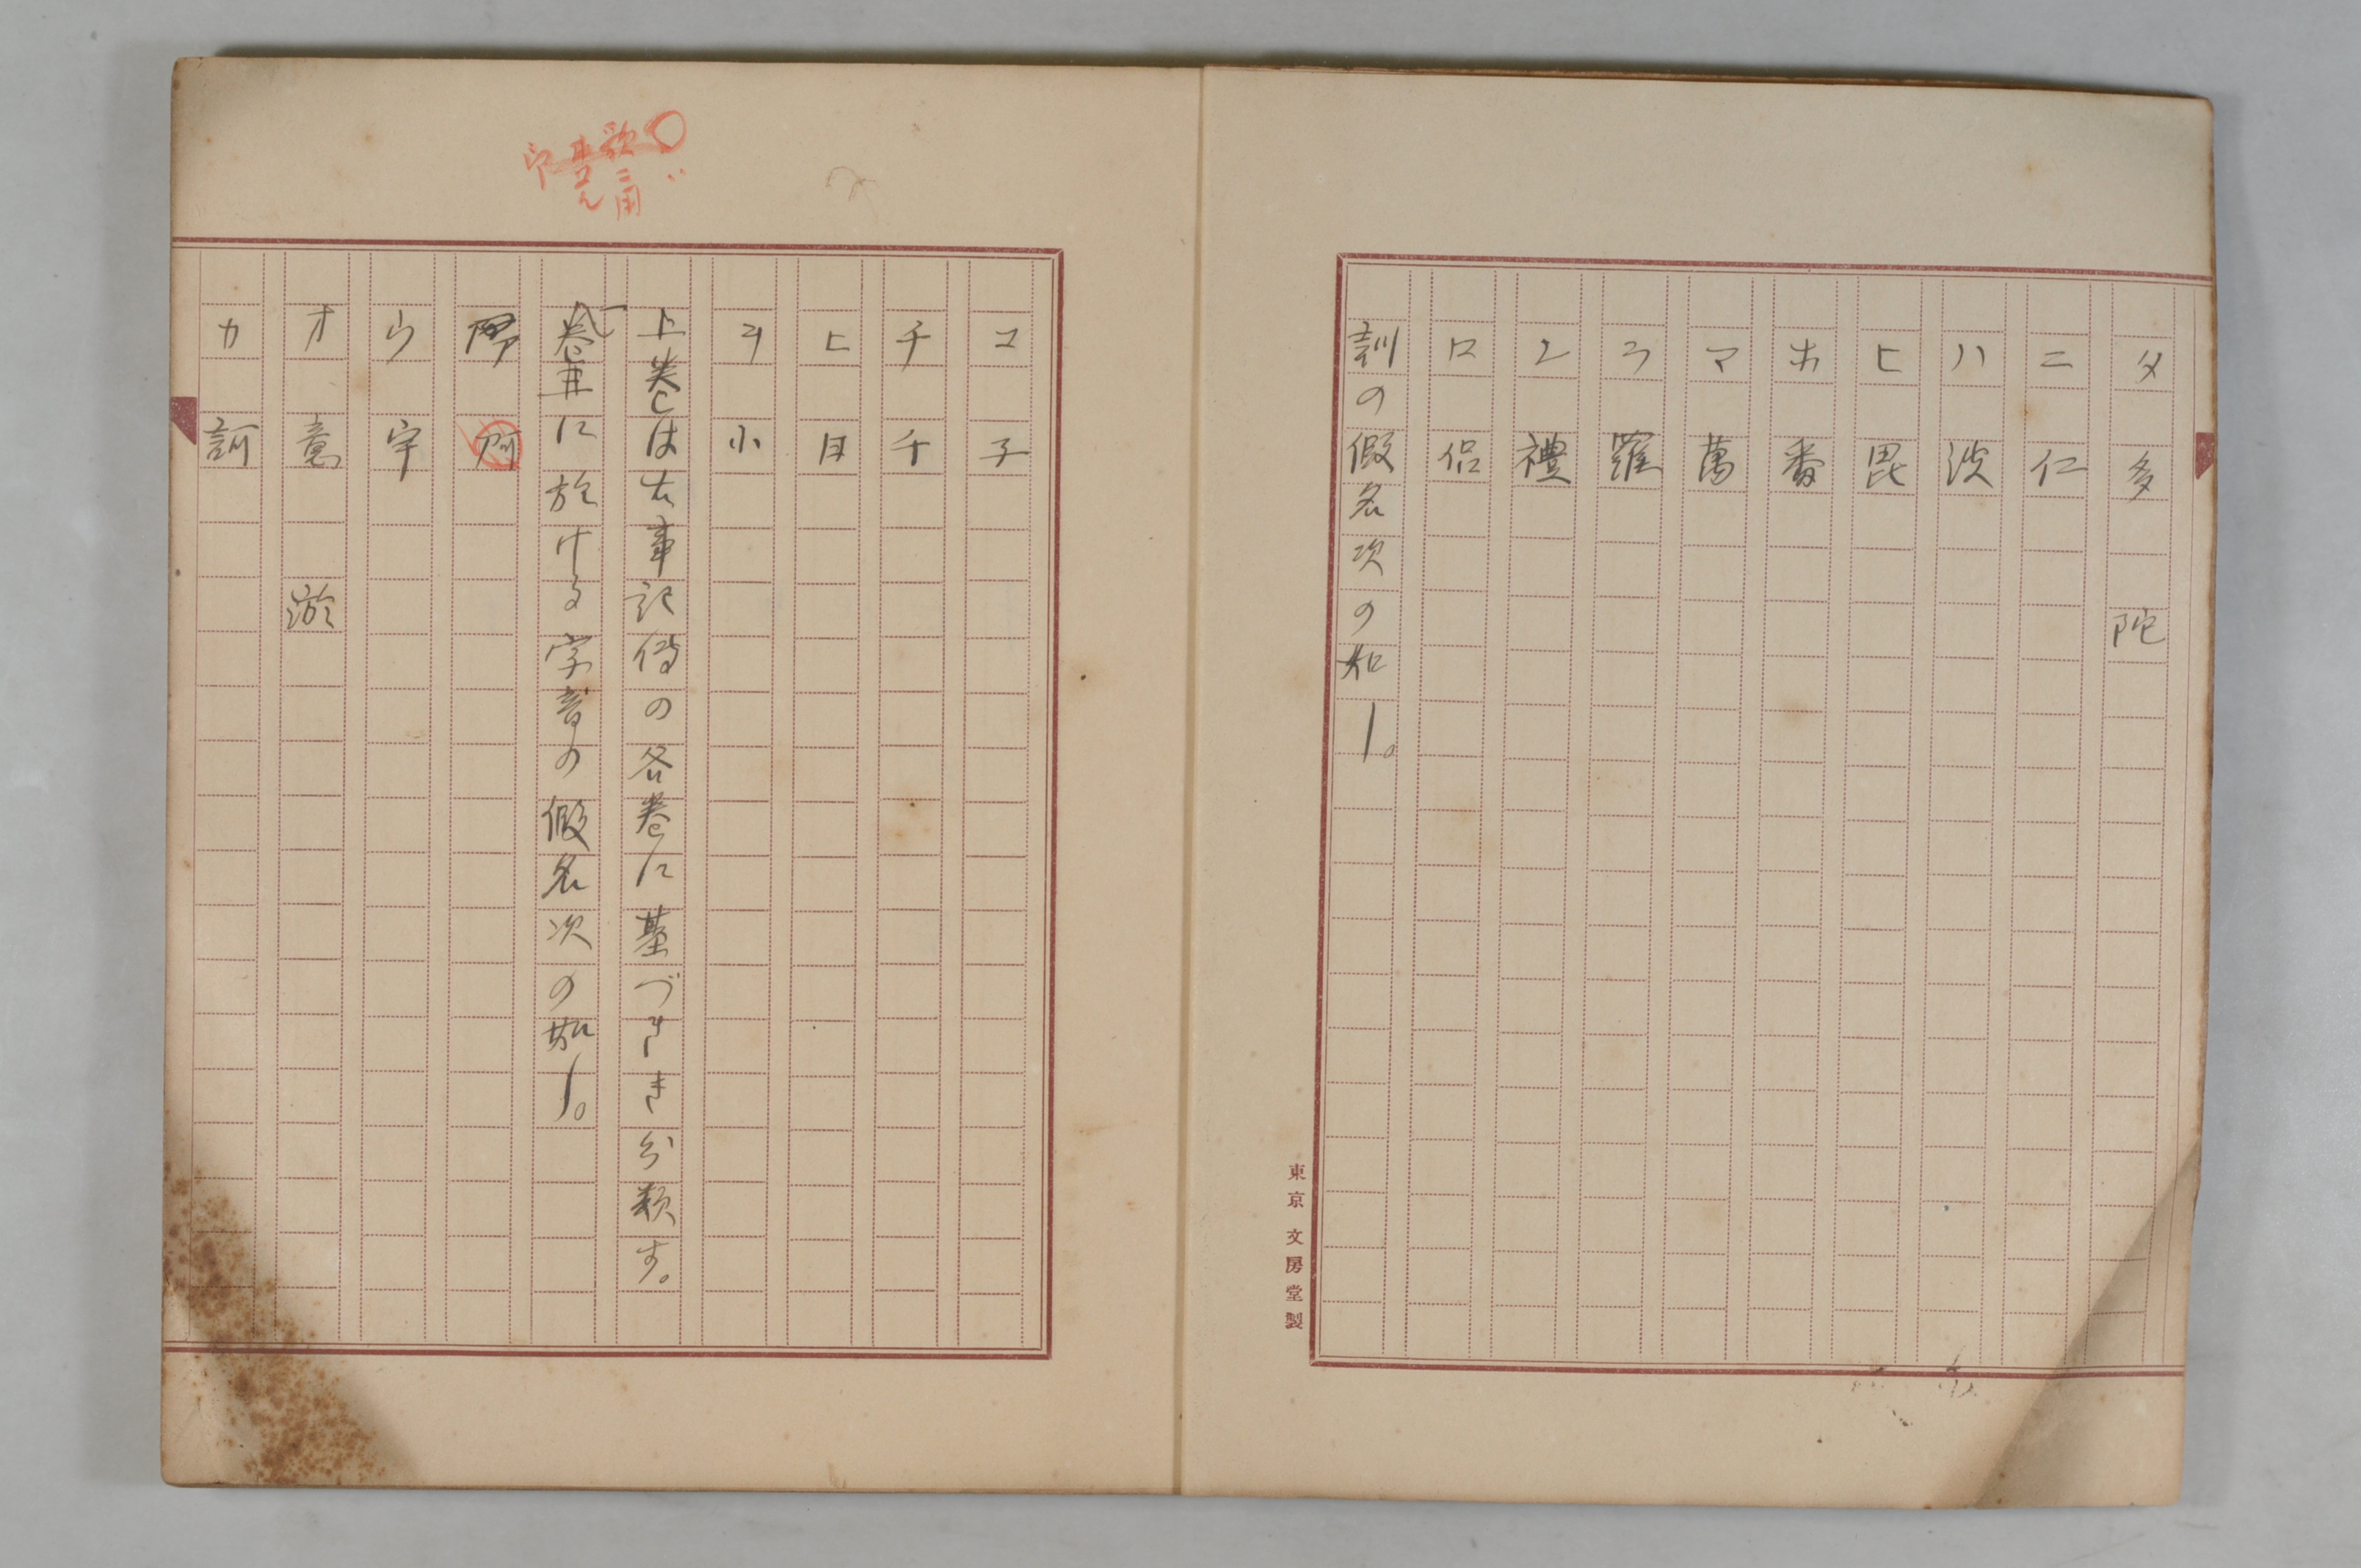 タ 多 陀
ニ 仁
ハ 波
ヒ 毘
ホ 番
マ 萬
ラ 羅
レ 禮
ロ 侶
訓の假名次の如し。
東京 文房堂製
コ 子
チ 千
ヒ 日
ヲ 小
上巻は古事記傳の各巻に基づきて分類す。
巻三に於ける字音の假名次の如し。
阿
ウ 宇
オ 意 淤
カ 訶